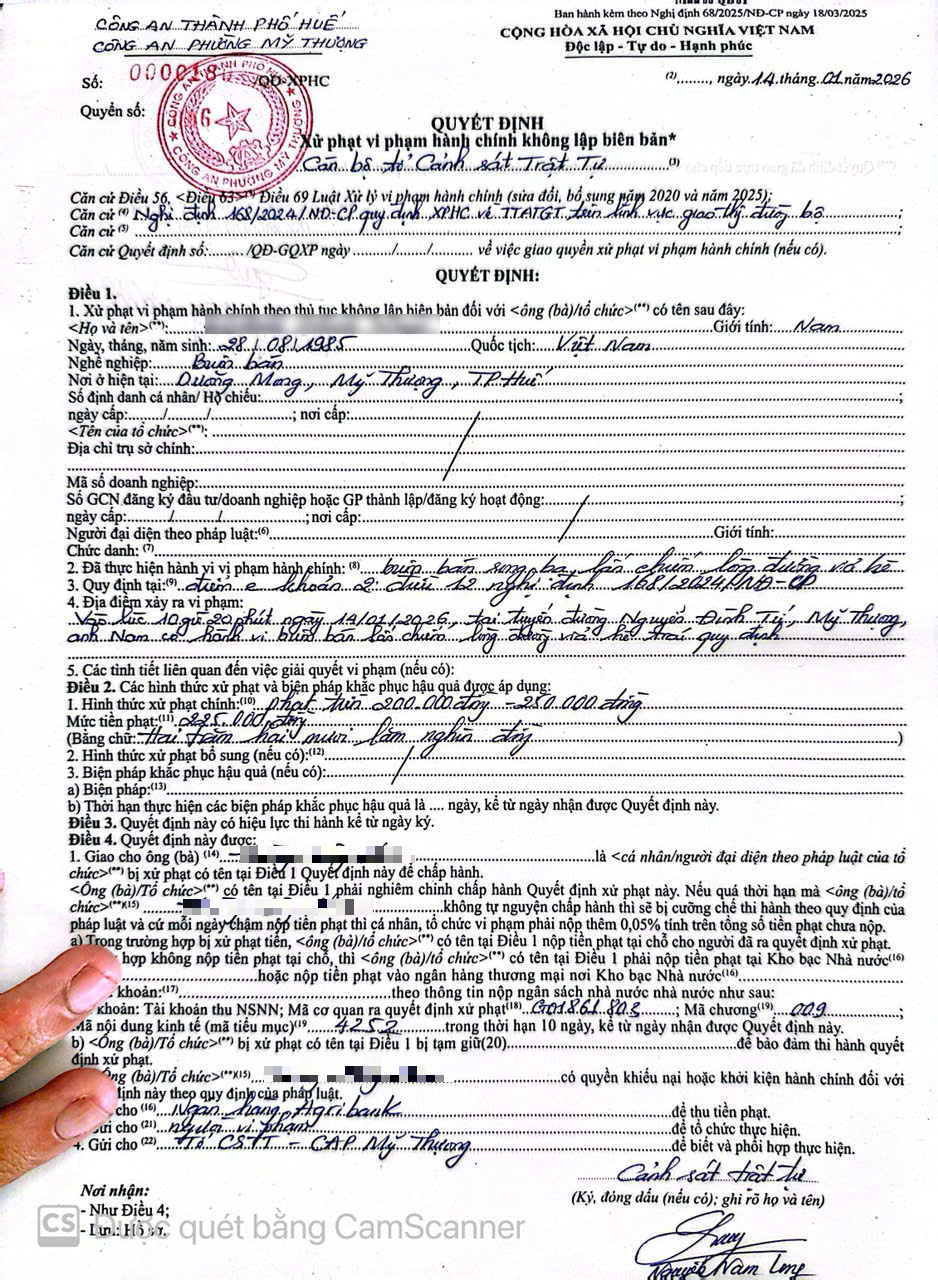 Ban hành kèm theo Nghị định 68/2025/NĐ-CP ngày 18/03/2025
CÔNG AN THÀNH PHỐ HUẾ
CÔNG AN PHƯỜNG MỸ THƯỢNG
CỘNG HÒA XÃ HỘI CHỦ NGHĨA VIỆT NAM
Độc lập - Tự do - Hạnh phúc
Số: 0000018 /QĐ-XPHC
(2)........, ngày 14 tháng 01 năm 2026
Quyển số:
CÔNG AN PHƯỜNG MỸ THƯỢNG
QUYẾT ĐỊNH
Xử phạt vi phạm hành chính không lập biên bản*
Cán bộ tổ Cảnh sát Trật Tự (3)
Căn cứ Điều 56, <Điều 63> Điều 69 Luật Xử lý vi phạm hành chính (sửa đổi, bổ sung năm 2020 và năm 2025);
Căn cứ (4) Nghị định 168/2024/NĐ-CP quy định XPHC về TTATGT trên lĩnh vực giao thông đường bộ;
Căn cứ (5)
Căn cứ Quyết định số:........./QĐ-GQXP ngày ....../....../........ về việc giao quyền xử phạt vi phạm hành chính (nếu có).
QUYẾT ĐỊNH:
Điều 1.
1. Xử phạt vi phạm hành chính theo thủ tục không lập biên bản đối với <ông (bà)/tổ chức>(**) có tên sau đây:
<Họ và tên>(**): Giới tính: Nam
Ngày, tháng, năm sinh: 28/08/1985 Quốc tịch: Việt Nam
Nghề nghiệp: Buôn bán
Nơi ở hiện tại: Dưỡng Mong, Mỹ Thượng, TP Huế
Số định danh cá nhân/ Hộ chiếu:
ngày cấp:......./......./............; nơi cấp:
<Tên của tổ chức>(**):
Địa chỉ trụ sở chính:
Mã số doanh nghiệp:
Số GCN đăng ký đầu tư/doanh nghiệp hoặc GP thành lập/đăng ký hoạt động:
ngày cấp:......./......./............; nơi cấp:
Người đại diện theo pháp luật:(6) Giới tính:
Chức danh: (7)
2. Đã thực hiện hành vi vi phạm hành chính: (8) buôn bán lấn chiếm lòng đường vỉa hè
3. Quy định tại:(9) điểm e khoản 2 điều 12 nghị định 168/2024/NĐ-CP
4. Địa điểm xảy ra vi phạm:
Vào lúc 10 giờ 20 phút ngày 14/01/2026, tại tuyến đường Nguyễn Đình Tứ, Mỹ Thượng,
anh Nam có hành vi buôn bán lấn chiếm lòng đường vỉa hè trái quy định
5. Các tình tiết liên quan đến việc giải quyết vi phạm (nếu có):
Điều 2. Các hình thức xử phạt và biện pháp khắc phục hậu quả được áp dụng:
1. Hình thức xử phạt chính:(10) phạt tiền 200.000 đồng - 250.000 đồng
Mức tiền phạt:(11) 225.000 đồng
(Bằng chữ: Hai trăm hai mươi lăm nghìn đồng)
2. Hình thức xử phạt bổ sung (nếu có):(12)
3. Biện pháp khắc phục hậu quả (nếu có):
a) Biện pháp:(13)
b) Thời hạn thực hiện các biện pháp khắc phục hậu quả là .... ngày, kể từ ngày nhận được Quyết định này.
Điều 3. Quyết định này có hiệu lực thi hành kể từ ngày ký.
Điều 4. Quyết định này được:
1. Giao cho ông (bà) (14) là <cá nhân/người đại diện theo pháp luật của tổ
chức>(**) bị xử phạt có tên tại Điều 1 Quyết định này để chấp hành.
<Ông (bà)/Tổ chức>(**) có tên tại Điều 1 phải nghiêm chỉnh chấp hành Quyết định xử phạt này. Nếu quá thời hạn mà <ông (bà)/tổ
chức>(**)(15) không tự nguyện chấp hành thì sẽ bị cưỡng chế thi hành theo quy định của
pháp luật và cứ mỗi ngày chậm nộp tiền phạt thì cá nhân, tổ chức vi phạm phải nộp thêm 0,05% tính trên tổng số tiền phạt chưa nộp.
a) Trong trường hợp bị xử phạt tiền, <ông (bà)/tổ chức>(**) có tên tại Điều 1 nộp tiền phạt tại chỗ cho người đã ra quyết định xử phạt.
hợp không nộp tiền phạt tại chỗ, thì <ông (bà)/tổ chức>(**) có tên tại Điều 1 phải nộp tiền phạt tại Kho bạc Nhà nước(16)
hoặc nộp tiền phạt vào ngân hàng thương mại nơi Kho bạc Nhà nước(16)
khoản:(17) theo thông tin nộp ngân sách nhà nước nhà nước như sau:
khoản: Tài khoản thu NSNN; Mã cơ quan ra quyết định xử phạt(18) G01861.803; Mã chương(19) 009;
Mã nội dung kinh tế (mã tiểu mục)(19 4252 trong thời hạn 10 ngày, kể từ ngày nhận được Quyết định này.
b) <Ông (bà)/Tổ chức>(**) bị xử phạt có tên tại Điều 1 bị tạm giữ(20) để bảo đảm thi hành quyết
định xử phạt.
Ông (bà)/Tổ chức>(**)(15) có quyền khiếu nại hoặc khởi kiện hành chính đối với
định này theo quy định của pháp luật.
cho (16) Ngân hàng Agribank để thu tiền phạt.
Gửi cho (21) người vi phạm để tổ chức thực hiện.
4. Gửi cho (22) Tổ CSTT - CAP Mỹ Thượng để biết và phối hợp thực hiện.
Cảnh sát trật tự
(Ký, đóng dấu (nếu có); ghi rõ họ và tên)
Nơi nhận:
- Như Điều 4;
- Lưu: Hồ sơ.
CS Được quét bằng CamScanner
Nguyễn Nam Long